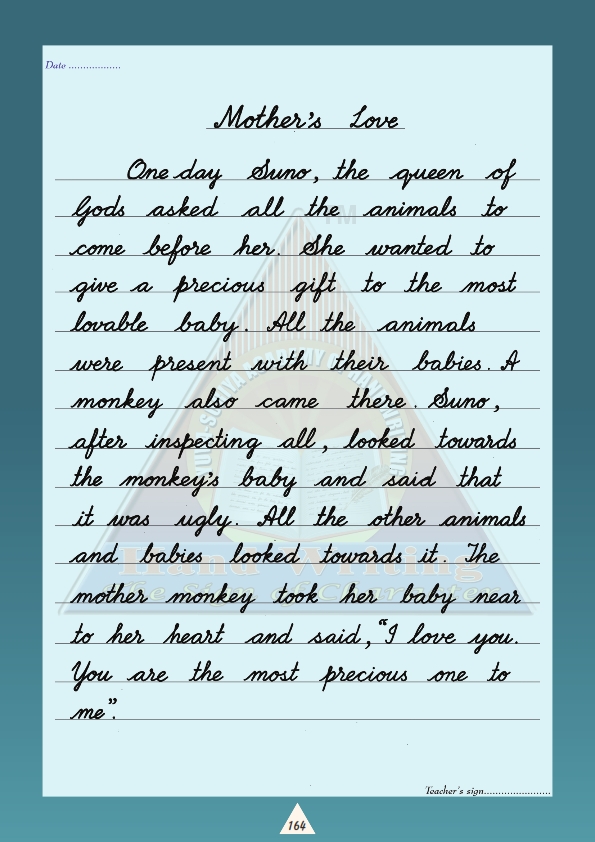 Date ..................
Mother's Love
One day Suno, the queen of
Gods asked all the animals to
come before her. She wanted to
give a precious gift to the most
lovable baby. All the animals
were present with their babies. A
monkey also came there. Suno,
after inspecting all, looked towards
the monkey's baby and said that
it was ugly. All the other animals
and babies looked towards it. The
mother monkey took her baby near
to her heart and said, “I love you.
You are the most precious one to
me”.
TM
Hand Writing
The Sign of Character
Teacher's sign.......................
164